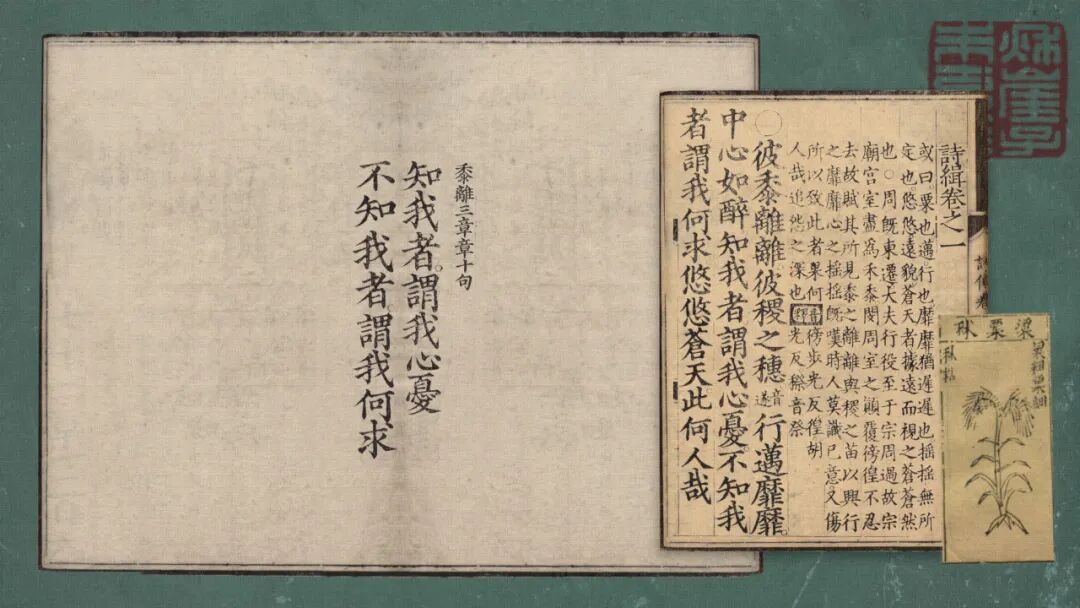 黍離三章章十句
知我者。謂我心憂
不知我者謂我何求
詩緝卷之一
或曰。粟也。邁。行也。靡靡猶遲遲也。搖搖無所
定也。悠悠遠貌。蒼天者據遠而視之蒼蒼然
也。○周既東遷。大夫行役至于宗周。過故宗
廟宮室盡爲禾黍。閔周室之顛覆。徬徨不忍
去。故賦其所見黍之離離與稷之苗以興行
之靡靡心之搖搖。既嘆時人莫識已意。又傷
所以致此者果何音徬步光反徨胡
人哉。追怨之深也光反穄音祭
○彼黍離離彼稷之穗音遂行邁靡靡。
中心如醉知我者謂我心憂。不知我
者謂我何求悠悠蒼天此何人哉
梁粟秫
秫粘